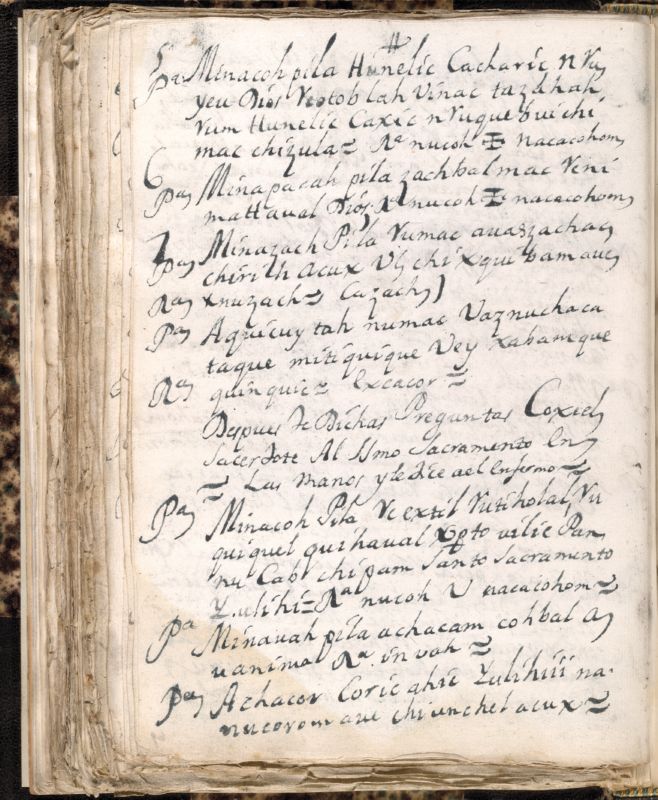 5
Pa Minacoh pila Hunelic Cacharic n Ru
yeu Dios Veotob lah Vinac tazakah
Rum Hunelic Caxic n Ruque buichi
mac chizula = Ra nucoh ✠ nacacohom
6
Pa Minapacah pila zachbal mac Veni
mattaval Dios Ra nucoh ✠ nacacohom
7
Pa Minazach Pila Vumac auaszachac
chirith acux Vtz chi xque bam aue
Ra xnuzach = Cazach
Pa Aquicuy tah numac Vaz nuchaca
taque mitiquique Vey xabanique
Ra quinquic = Excacor =
Despues de Dichas Preguntas Coxe el
Sacerdote Al SSmo Sacramento En
= Las manos y le dice ael Enfermo =
Pa Minacoh Pila Ve extil Rutiholal, Ru
quiquel quihaual Xpto vilic Pan
nu Cab chipam Santo Sacramento
Zulihi = Ra nucoh V nacacohom =
Pa Minauah pila achacam cohbal a
uanima Ra. in vah =
Pa Achacor Coric ahic Zulihiii na-
nucorom aue chiunchel acux =